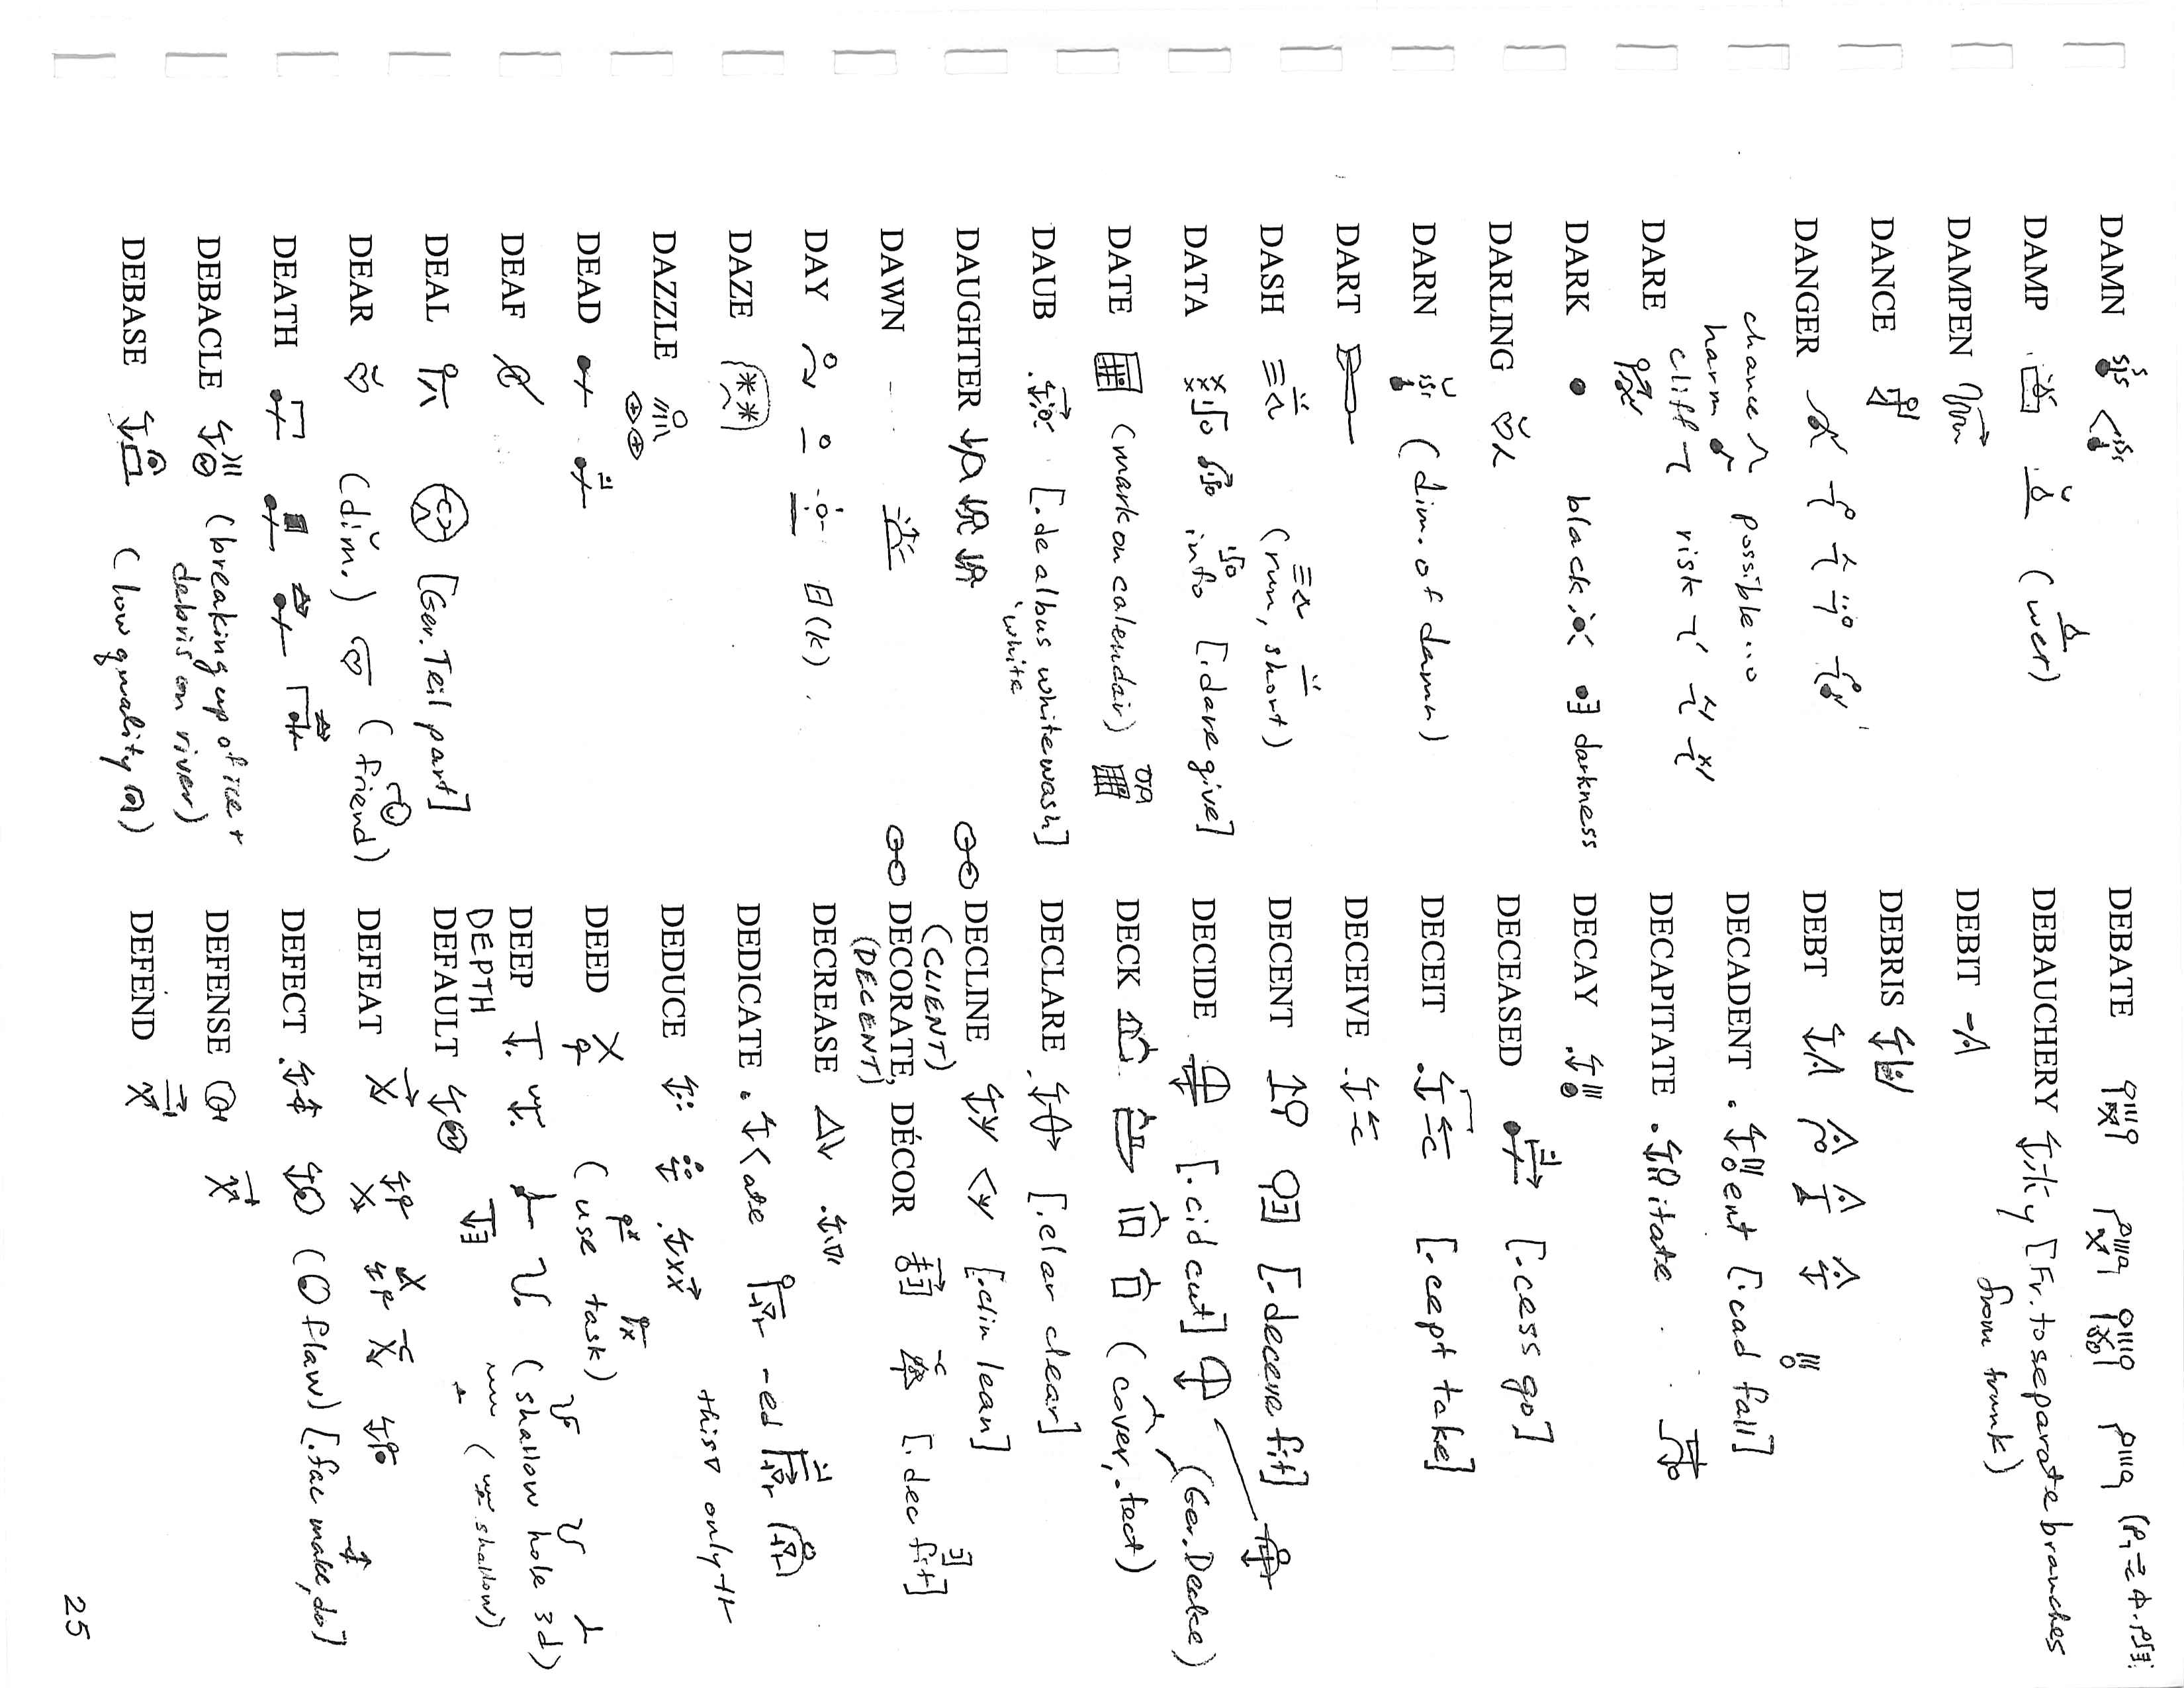 DAMN
DAMP (wet)
DAMPEN
DANCE
DANGER
chance possible...
harm
cliff risk
DARE
DARK black darkness
DARLING
DARN (dim. of damn)
DART
DASH (run, short)
DATA info [.dare give]
DATE (mark on calendar)
DAUB [.de albus whitewash]
white
DAUGHTER
DAWN
DAY (k)
DAZE
DAZZLE
DEAD
DEAF
DEAL [Ger. Teil part]
DEAR (dim.) (friend)
DEATH
DEBACLE (breaking up of ice +
debris on river)
DEBASE (low quality)
DEBATE
DEBAUCHERY [Fr. to separate branches
from trunk)
DEBIT
DEBRIS
DEBT
DECADENT ent [.cad fall]
DECAPITATE itate
DECAY
DECEASED [.cess go]
DECEIT [.cept take]
DECEIVE
DECENT [.decere fit]
DECIDE [.cid cut]
DECK (cover, .tect) (Ger. Decke)
DECLARE [.clar clear]
DECLINE [.clin lean]
(CLIENT)
DECORATE, DÉCOR [.dec fit]
(DECENT)
DECREASE
DEDICATE ate -ed
DEDUCE this only
DEED (use task)
DEEP (shallow hole 3d)
DEPTH (shallow)
DEFAULT
DEFEAT
DEFECT (flaw) [.fac make, do]
DEFENSE
DEFEND
25